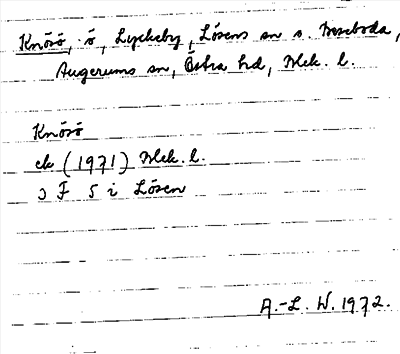 Knösö, ö, Lyckeby, Lösens sn o. Mseboda,
Augerums sn, Östra hd, Blek. l.
Knösö
ek (1971) Blek. l.
J F 5 i Lösen
A.-L. W. 1972.